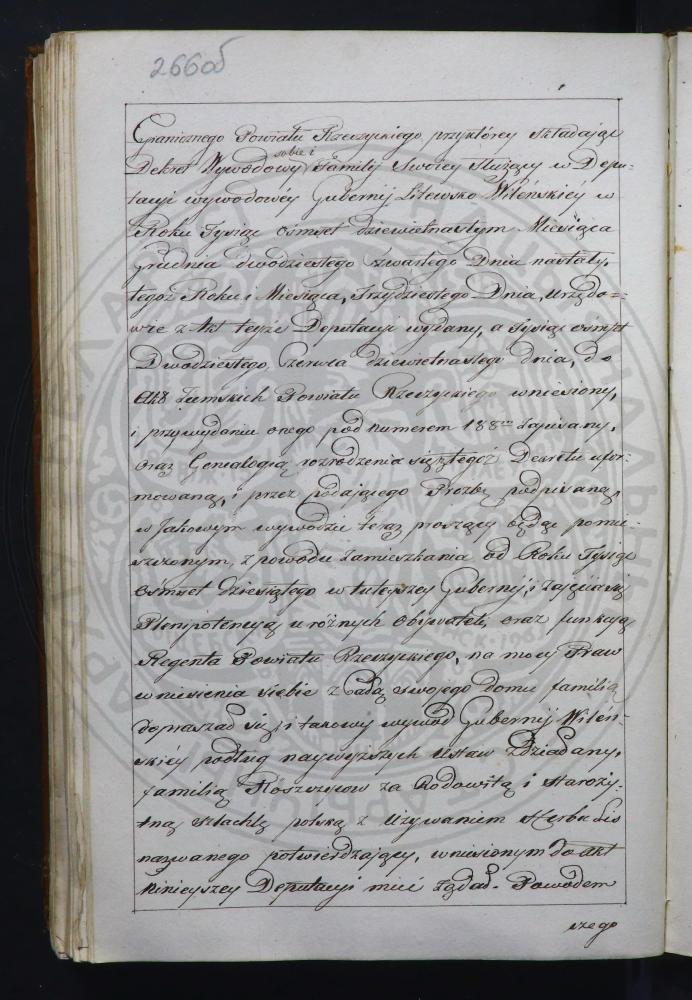 266об
Granicznego Powiatu Rzeczyckiego, przyktórey składaiąc
Dekret Wywodowy sobie i Familij Swoiey Służący w Depu-
tacyi wywodowéy Gubernij Litewsko Wileńskiéy w
Roku Tysiąc ośmset dziewietnastym Miesiąca
Grudnia dwodziestego czwartego Dnia nastały,
tegoż Roku i Miesiąca, Trzydziestego Dnia, Urzędo-
wie z Akt teyże Deputacyi wydany, a Tysiąc ośmset
Dwodziestego, Czerwca dziewietnastego dnia, do
Akt Ziemskich Powiatu Rzeczyckiego wniesiony,
i przywydaniu onego pod numerem 188 zapisany,
oraz Genealogią rozrodzenia się z tegoż Dekretu ufor-
mowaną, i przez podaiącego Prozbę podpisaną,
w Jakowym wywodzie teraz proszący będąc pomie-
szczonym, z powodu zamieszkania od Roku Tysiąc
Ośmset Dziesiątego w tuteyszey Gubernij, i Zaięcia się
Plenipotencyą u różnych Obywateli, oraz funkcyą
Regenta Powiatu Rzeczyckiego, na mocy Praw
wniesienia siebie z Całą swojego domu familią
dopraszad się, i takowy wywód Gubernij Wileń-
skiéy podług naywyższych Ustaw Zdziałany,
familią Kószczycow za Rodowitą i Staroży-
tną szlachtę polską z Używaniem Herbu Lis
nazwanego potwierdzaiący, wniesionym do Akt
Ninieyszey Deputacyi mieć żądał. Powodem
czego